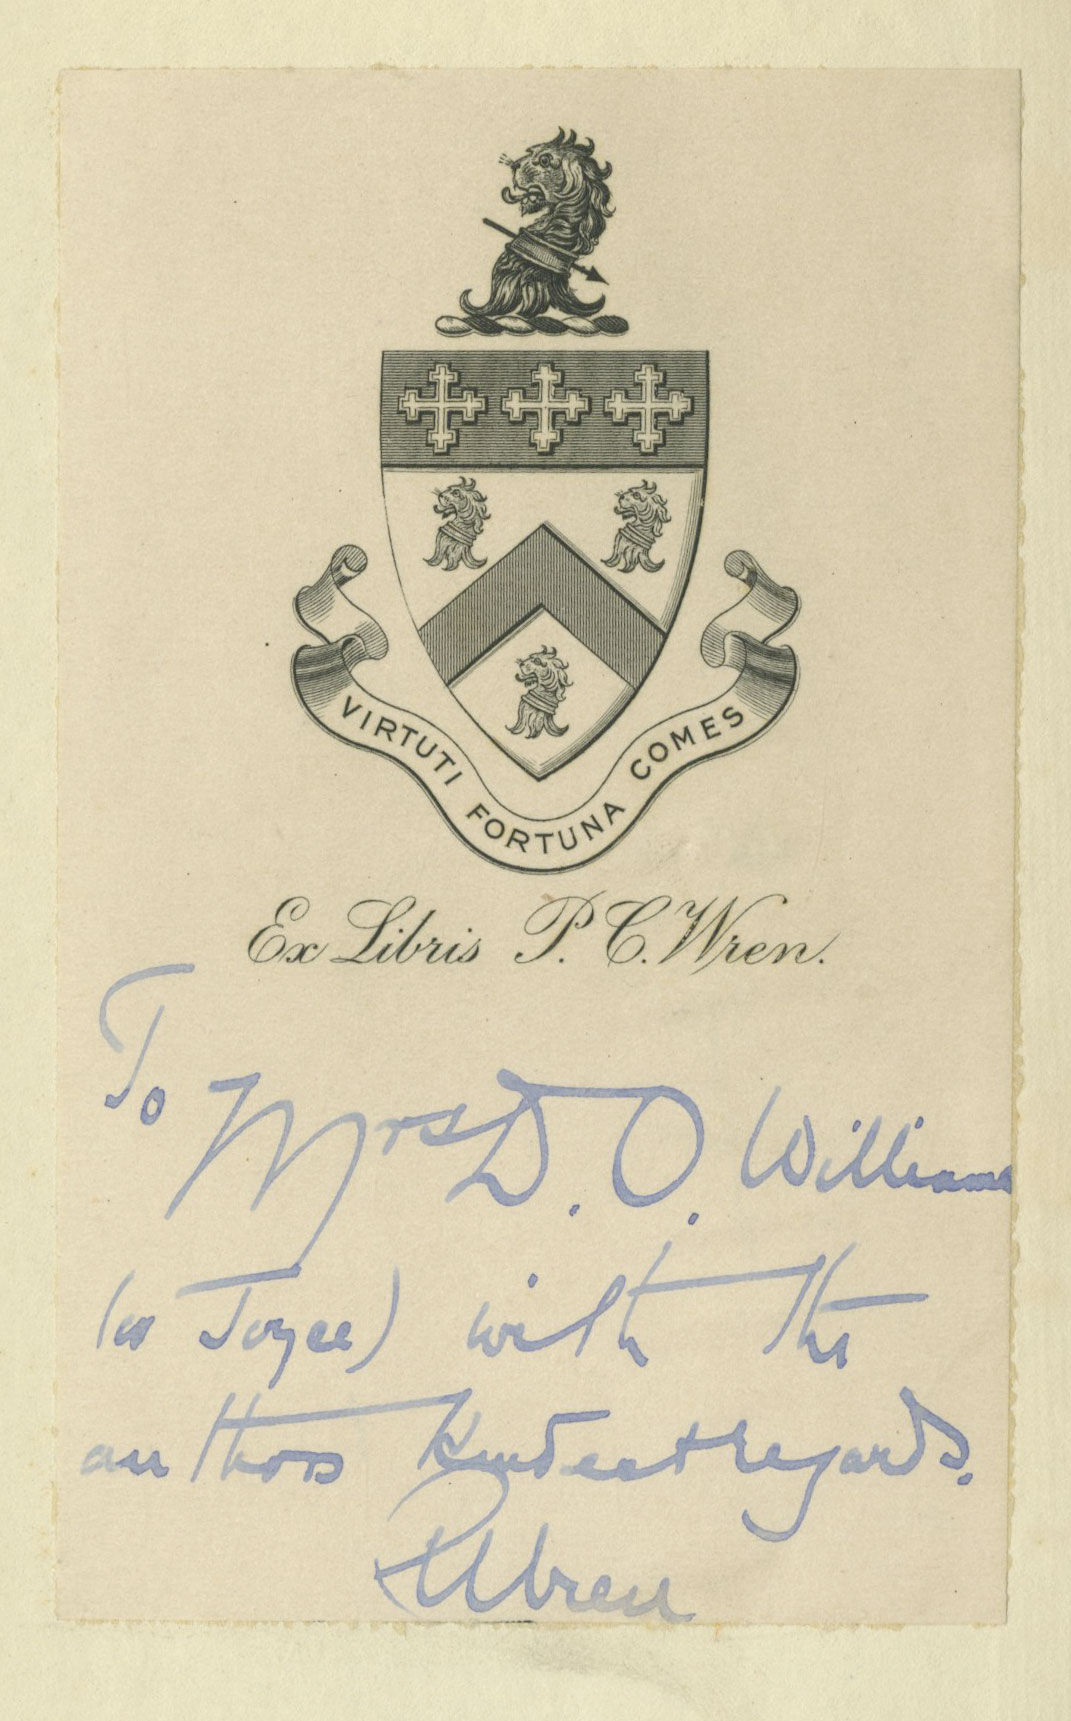 VIRTUTI FORTUNA COMES
Ex Libris P. C. Wren.
To Mrs D. O. Williams
(or Joyce) with the
authors kindest regards.
P C Wren